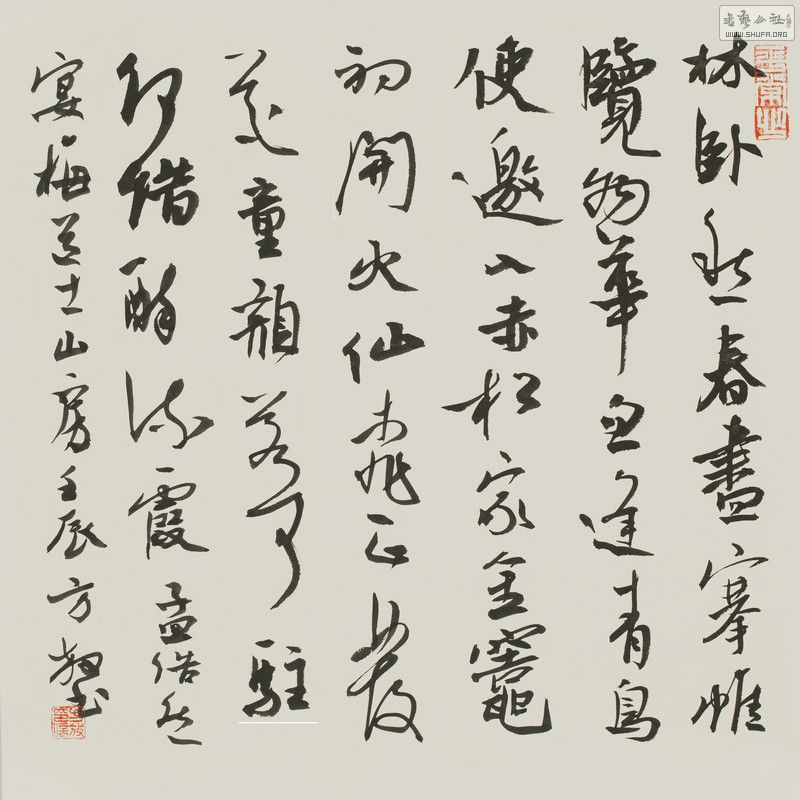 林卧愁春盡搴帷
覽物華忽逢青鳥
使邀入赤松家金竈
初開火仙桃正發
花童顏若可駐
何惜醉流霞 孟浩然
宴梅道士山房壬辰方
書藝公社
WWW.SHUFA.ORG